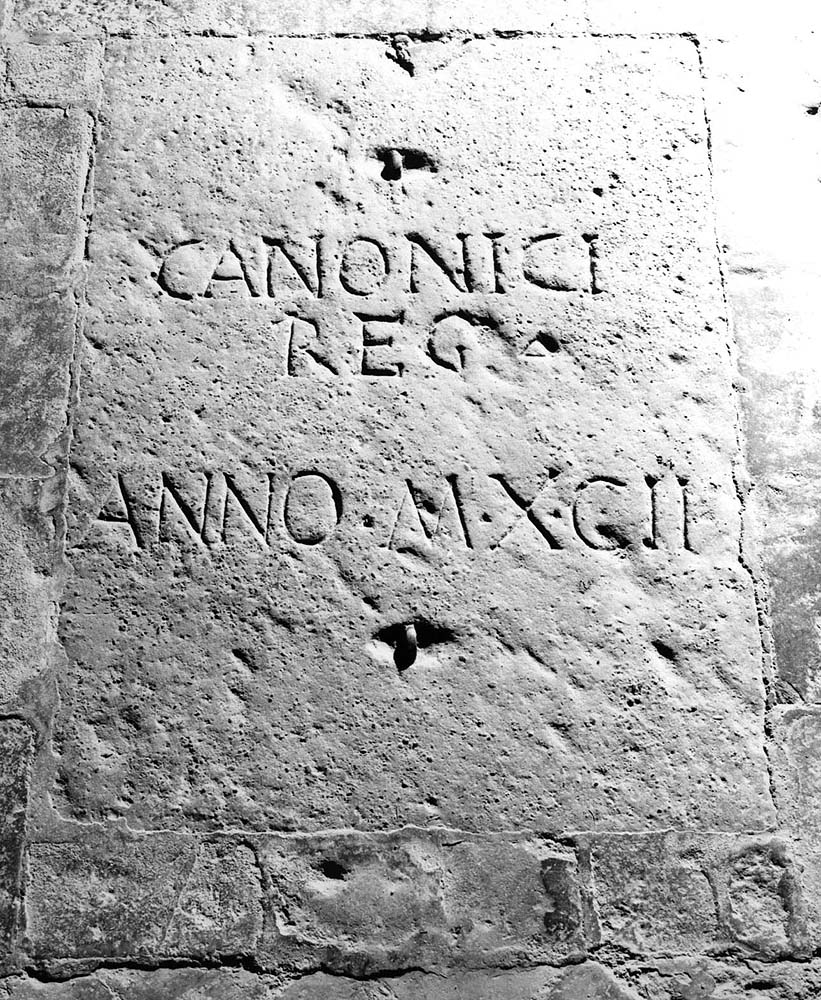 CANONICI
REG▴
ANNO·M·X·CII